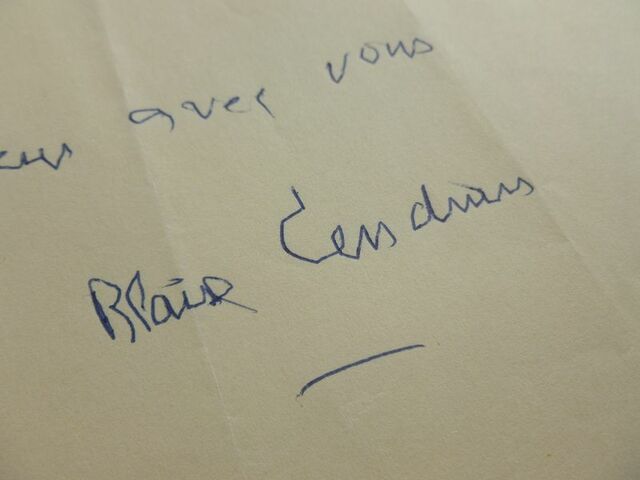 avec vous
Blaise Cendrars